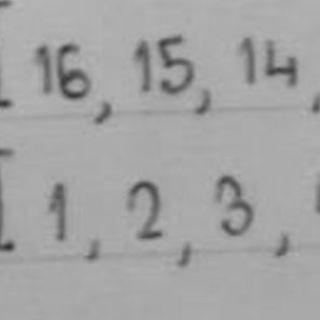 [ 16, 15, 14,
[ 1, 2, 3,